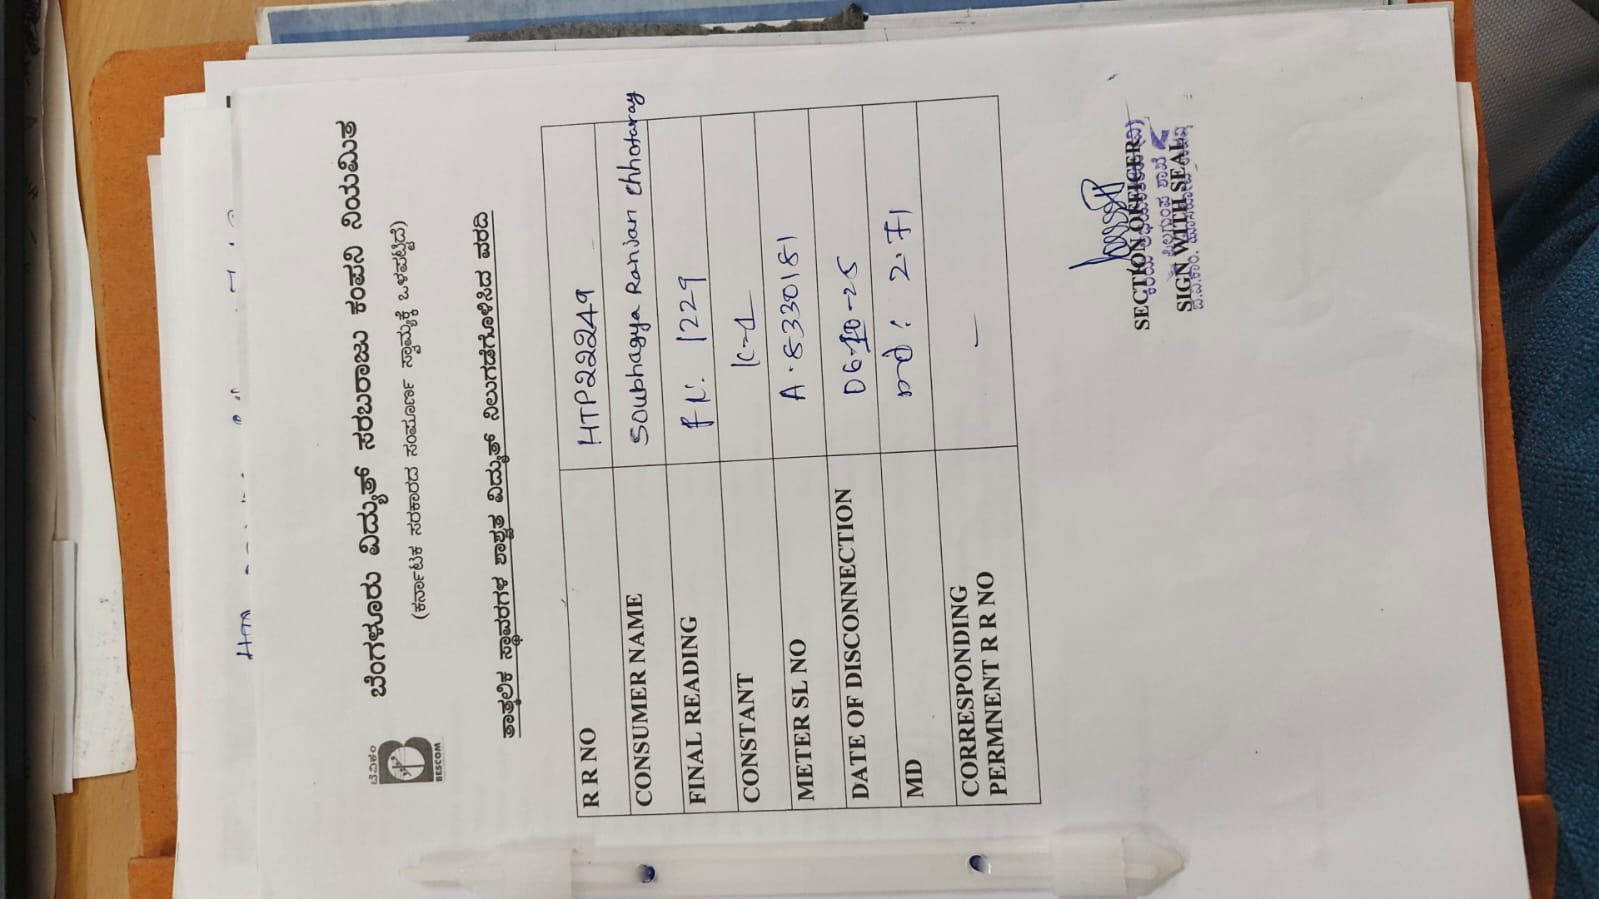 ಬೆವಿಕಂ
BESCOM
ಬೆಂಗಳೂರು ವಿದ್ಯುತ್ ಸರಬರಾಜು ಕಂಪನಿ ನಿಯಮಿತ
(ಕರ್ನಾಟಕ ಸರಕಾರದ ಸಂಪೂರ್ಣ ಸ್ವಾಮ್ಯಕ್ಕೆ ಒಳಪಟ್ಟಿದೆ)
ತಾತ್ಕಲಿಕ ಸ್ಥಾವರಗಳ ಶಾಶ್ವತ ವಿದ್ಯುತ್ ನಿಲುಗಡೆಗೊಳಿಸಿದ ವರದಿ
R R NO HTP22249
CONSUMER NAME Soubhagya Ranjan Chhotaray
FINAL READING FR: 1229
CONSTANT K-1
METER SL NO A·8330181
DATE OF DISCONNECTION 06-10-25
MD : 2.71
CORRESPONDING PERMNENT R R NO –
SECTION OFFICER
SIGN WITH SEAL